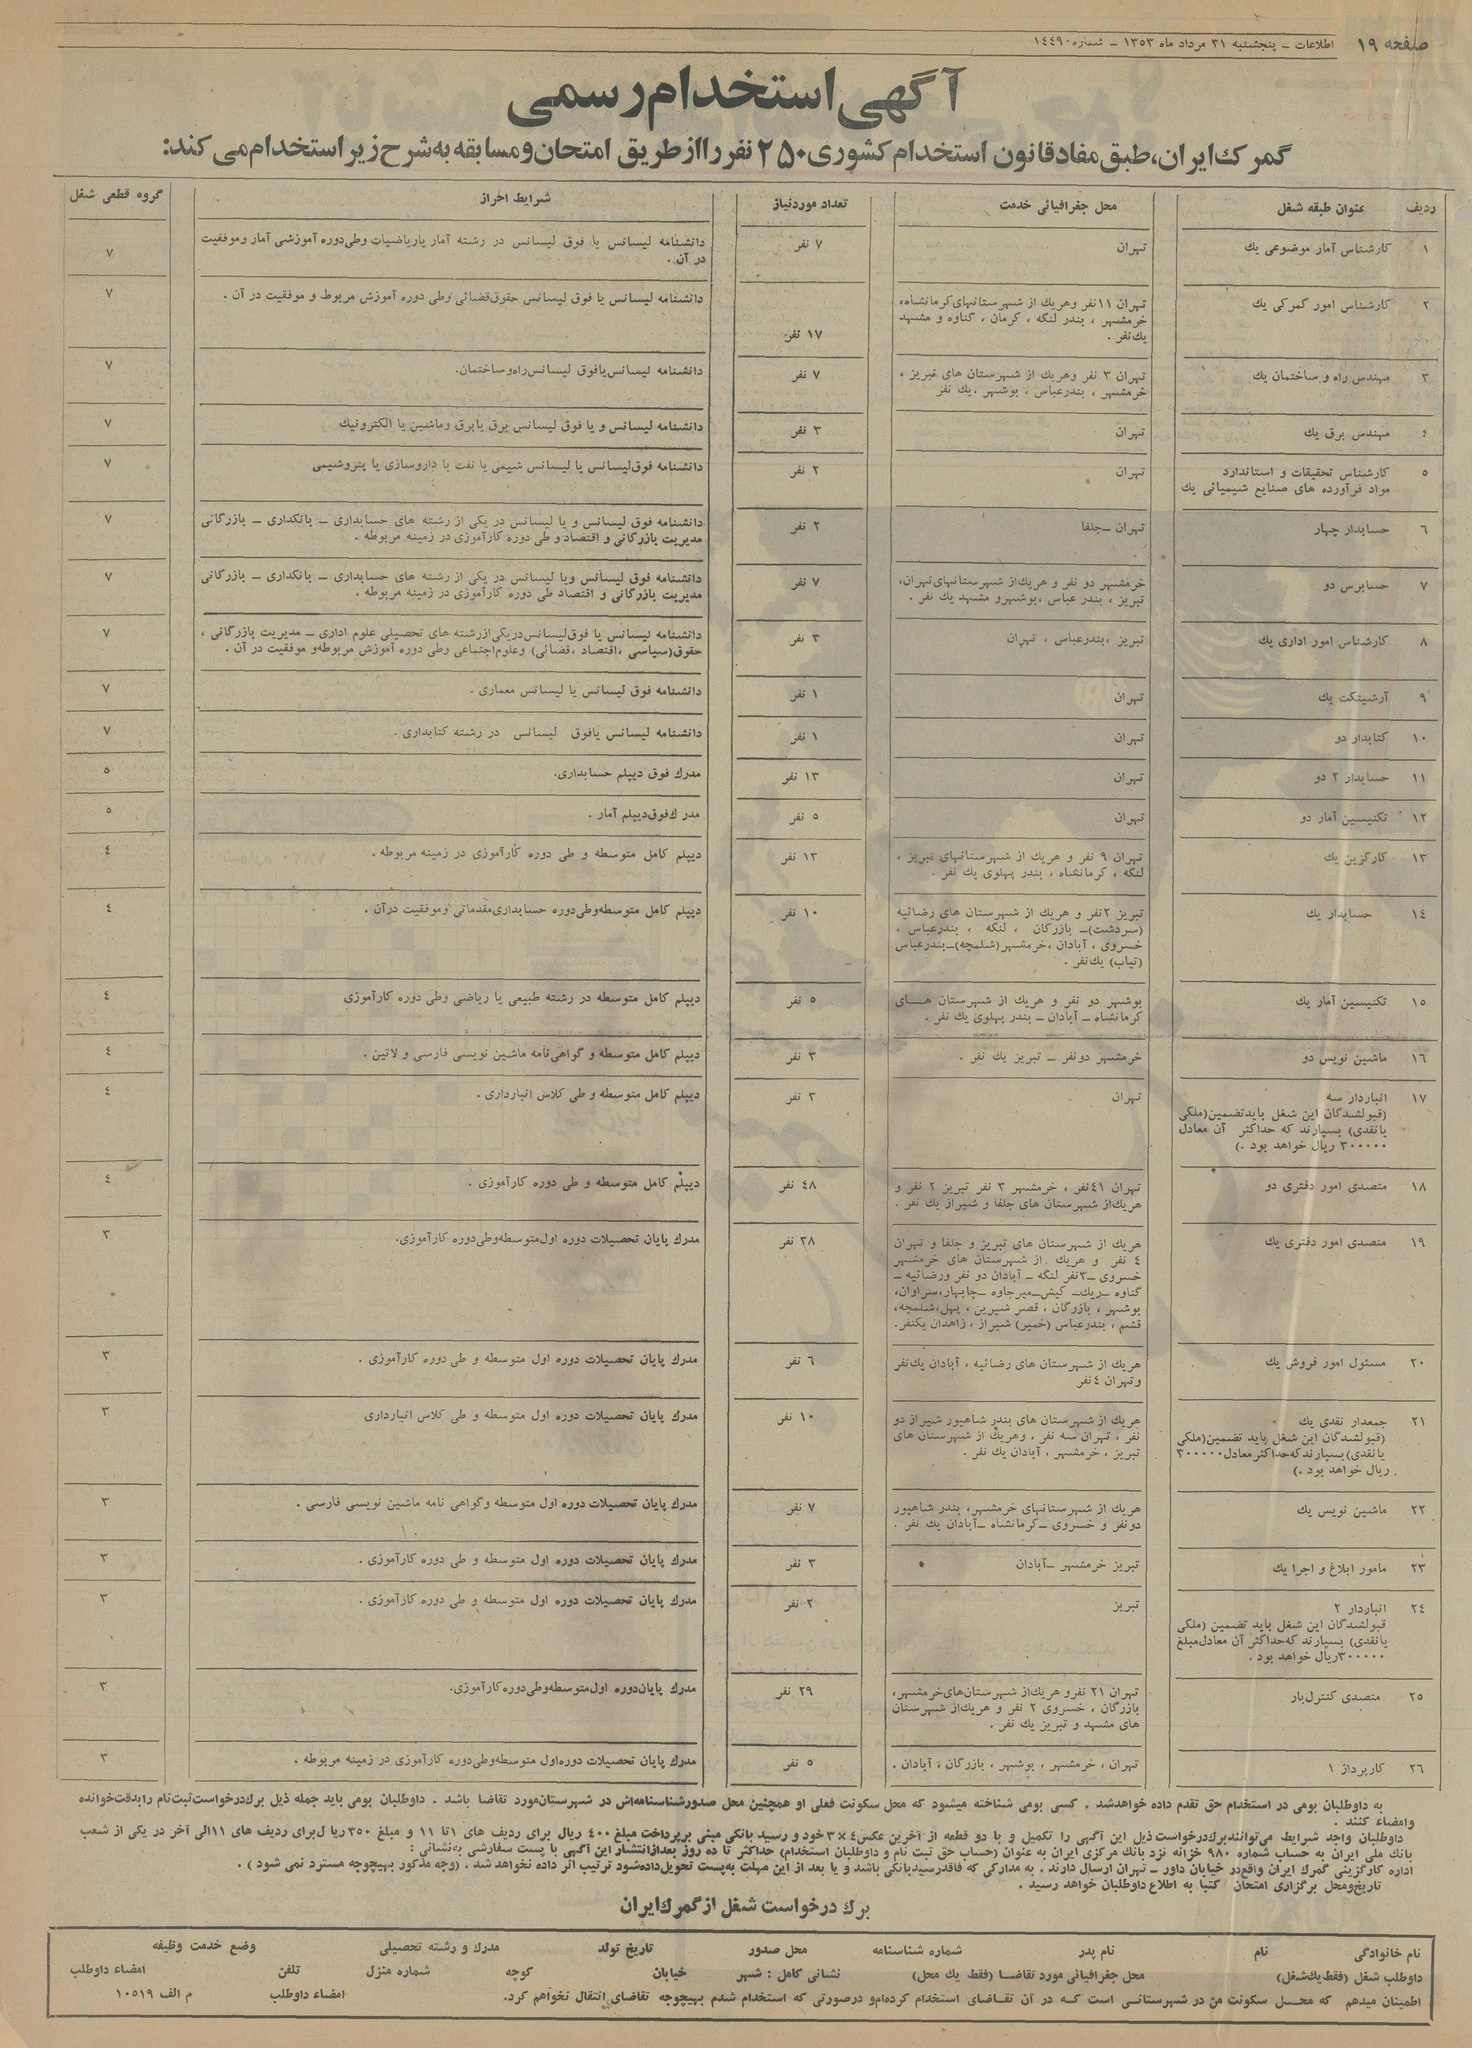 صفحه ۱۹
اطلاعات – پنجشنبه ۳۱ مرداد ماه ۱۳۵۳ – شماره ۱٤٤۹۰
آگهی استخدام رسمی
گمرك ایران، طبق مفاد قانون استخدام کشوری ۲۵۰ نفر را از طریق امتحان و مسابقه به شرح زیر استخدام می کند:
ردیف عنوان طبقه شغل محل جغرافیائی خدمت تعداد موردنیاز شرایط احراز گروه قطعی شغل
۱ کارشناس آمار موضوعی یك تهران ۷ نفر دانشنامه لیسانس یا فوق لیسانس در رشته آمار یاریاضیات وطی دوره آموزشی آمار وموفقیت ۷
در آن .
۲ کارشناس امور گمرکی یك تهران ۱۱ نفر وهریك از شهرستانهای کرمانشاه، ۱۷ نفر دانشنامه لیسانس یا فوق لیسانس حقوق قضائی وطی دوره آموزش مربوط و موفقیت در آن . ۷
خرمشهر ، بندر لنگه ، کرمان ، گناوه و مشهد
یك نفر .
۳ مهندس راه و ساختمان یك تهران ۳ نفر وهریك از شهرستان های تبریز ، ۷ نفر دانشنامه لیسانس یافوق لیسانس راه و ساختمان. ۷
خرمشهر ، بندرعباس ، بوشهر ،یك نفر
٤ مهندس برق یك تهران ۳ نفر دانشنامه لیسانس و یا فوق لیسانس برق یابرق وماشین یا الکترونیك ۷
۵ کارشناس تحقیقات و استاندارد تهران ۲ نفر دانشنامه فوق لیسانس یا لیسانس شیمی یا نفت یا داروسازی یا پتروشیمی ۷
مواد فرآورده های صنایع شیمیائی یك
٦ حسابدار چهار تهران –جلفا ۲ نفر دانشنامه فوق لیسانس و یا لیسانس در یکی از رشته های حسابداری – بانکداری – بازرگانی ۷
مدیریت بازرگانی و اقتصاد و طی دوره کارآموزی در زمینه مربوطه .
۷ حسابرس دو خرمشهر دو نفر و هریك از شهرستانهای تهران، ۷ نفر دانشنامه فوق لیسانس ویا لیسانس در یکی از رشته های حسابداری – بانکداری – بازرگانی ۷
تبریز ، بندر عباس ،بوشهر و مشهد یك نفر . مدیریت بازرگانی و اقتصاد طی دوره کارآموزی در زمینه مربوطه .
۸ کارشناس امور اداری یك تبریز ،بندرعباس ، تهران ۳ نفر دانشنامه لیسانس یا فوق لیسانس در یکی از رشته های تحصیلی علوم اداری – مدیریت بازرگانی ، ۷
حقوق(سیاسی ،اقتصاد ،قضائی) وعلوم اجتماعی وطی دوره آموزش مربوطه و موفقیت در آن .
۹ آرشیتکت یك تهران ۱ نفر دانشنامه فوق لیسانس یا لیسانس معماری . ۷
۱۰ کتابدار دو تهران ۱ نفر دانشنامه لیسانس یافوق لیسانس در رشته کتابداری . ۷
۱۱ حسابدار ۲ دو تهران ۱۳ نفر مدرك فوق دیپلم حسابداری. ۵
۱۲ تکنیسین آمار دو تهران ۵ نفر مدرك فوق دیپلم آمار . ۵
۱۳ کارگزین یك تهران ۹ نفر و هریك از شهرستانهای تبریز ، ۱۳ نفر دیپلم کامل متوسطه و طی دوره کارآموزی در زمینه مربوطه . ٤
لنگه ، کرمانشاه ، بندر پهلوی یك نفر .
۱٤ حسابدار یك تبریز ۲نفر و هریك از شهرستان های رضائیه ۱۰ نفر دیپلم کامل متوسطه وطی دوره حسابداری مقدماتی وموفقیت درآن . ٤
(سردشت)– بازرگان ، لنگه ، بندرعباس ،
خسروی ، آبادان ،خرمشهر(شلمچه)–بندرعباس
(تیاب) یك نفر .
۱۵ تکنیسین آمار یك بوشهر دو نفر و هریك از شهرستان هـای ۵ نفر دیپلم کامل متوسطه در رشته طبیعی یا ریاضی وطی دوره کارآموزی ٤
کرمانشاه – آبادان – بندر پهلوی یك نفر .
۱٦ ماشین نویس دو خرمشهر دونفر – تبریز یك نفر . ۳ نفر دیپلم کامل متوسطه و گواهی نامه ماشین نویسی فارسی و لاتین . ٤
۱۷ انباردار سه تهران ۳ نفر دیپلم کامل متوسطه و طی کلاس انبارداری . ٤
(قبولشدگان این شغل باید تضمین(ملکی
یا نقدی) بسپارند که حداکثر آن معادل
۳۰۰۰۰۰ ریال خواهد بود .)
۱۸ متصدی امور دفتری دو تهران ٤۱ نفر ، خرمشهر ۳ نفر تبریز ۲ نفر و ٤۸ نفر دیپلم کامل متوسطه و طی دوره کارآموزی . ٤
هریك از شهرستان های جلفا و شیراز یك نفر .
۱۹ متصدی امور دفتری یك هریك از شهرستان های تبریز و جلفا و تهران ۳۸ نفر مدرك پایان تحصیلات دوره اول متوسطه وطی دوره کارآموزی. ۳
٤ نفر و هریك از شهرستان های خرمشهر
خسروی –۳نفر لنگه – آبادان دو نفر ورضائیه –
گناوه –ریك– کیش–میرجاوه –چابهار،سراوان،
بوشهر ، بازرگان ، قصر شیرین ، پهل،شلمچه،
قشم ، بندرعباس (خمیر) شیراز ، زاهدان یکنفر.
۲۰ مسئول امور فروش یك هریك از شهرستان های رضائیه ، آبادان یك نفر ٦ نفر مدرك پایان تحصیلات دوره اول متوسطه و طی دوره کارآموزی . ۳
وتهران ٤ نفر
۲۱ جمعدار نقدی یك هریك از شهرستان های بندر شاهپور شیراز دو ۱۰ نفر مدرك پایان تحصیلات دوره اول متوسطه و طی کلاس انبارداری ۳
(قبولشدگان این شغل باید تضمین(ملکی نفر ، تهران سه نفر ، وهریك از شهرستان های
یا نقدی) بسپارند که حداکثر معادل ۳۰۰۰۰۰ تبریز ، خرمشهر ، آبادان یك نفر .
ریال خواهد بود .)
۲۲ ماشین نویس یك هریك از شهرستانهای خرمشهر، بندر شاهپور ۷ نفر مدرك پایان تحصیلات دوره اول متوسطه وگواهی نامه ماشین نویسی فارسی . ۳
دونفر و خسروی –کرمانشاه –آبادان یك نفر .
۲۳ مامور ابلاغ و اجرا یك تبریز خرمشهر –آبادان ۳ نفر مدرك پایان تحصیلات دوره اول متوسطه و طی دوره کارآموزی . ۳
۲٤ انباردار ۲ تبریز ۲ نفر مدرك پایان تحصیلات دوره اول متوسطه و طی دوره کارآموزی . ۳
قبولشدگان این شغل باید تضمین (ملکی
یا نقدی) بسپارند که حداکثر آن معادل مبلغ
۳۰۰۰۰۰ریال خواهد بود .
۲۵ متصدی کنترل بار تهران ۲۱ نفر و هریك از شهرستان های خرمشهر، ۲۹ نفر مدرك پایان دوره اول متوسطه وطی دوره کارآموزی. ۳
بازرگان ، خسروی ۲ نفر و هریك از شهرستان
های مشهد و تبریز یك نفر .
۲٦ کارپرداز ۱ تهران ، خرمشهر ، بوشهر ، بازرگان ، آبادان . ۵ نفر مدرك پایان تحصیلات دوره اول متوسطه وطی دوره کارآموزی در زمینه مربوطه . ۳
به داوطلبان بومی در استخدام حق تقدم داده خواهد شد . کسی بومی شناخته میشود که محل سکونت فعلی او همچنین محل صدورشناسنامه اش در شهرستان مورد تقاضا باشد . داوطلبان بومی باید جمله ذیل برك درخواست ثبت نام را بدقت خوانده
وامضاء کنند .
داوطلبان واجد شرایط می توانند برك درخواست ذیل این آگهی را تکمیل و با دو قطعه از آخرین عکس ٤ × ۳ خود و رسید بانکی مبنی بر پرداخت مبلغ ٤۰۰ ریال برای ردیف های ۱ تا ۱۱ و مبلغ ۳۵۰ ریال برای ردیف های ۱۱ الی آخر در یکی از شعب
بانك ملی ایران به حساب شماره ۹۸۰ خزانه نزد بانك مرکزی ایران به عنوان (حساب حق ثبت نام و داوطلبان استخدام) حداکثر تا ده روز بعد از انتشار این آگهی با پست سفارشی به نشانی :
اداره کارگزینی گمرك ایران واقع در خیابان داور – تهران ارسال دارند . به مدارکی که فاقد رسید بانکی باشد و یا بعد از این مهلت به پست تحویل داده شود ترتیب اثر داده نخواهد شد . (وجه مذکور بهیچوجه مسترد نمی شود ) .
تاریخ و محل برگزاری امتحان کتبا به اطلاع داوطلبان خواهد رسید .
برك درخواست شغل از گمرك ایران
نام خانوادگی نام نام پدر شماره شناسنامه محل صدور تاریخ تولد مدرك و رشته تحصیلی وضع خدمت وظیفه
داوطلب شغل (فقط یك شغل) محل جغرافیائی مورد تقاضا (فقط یك محل) نشانی کامل : شهر خیابان کوچه شماره منزل تلفن امضاء داوطلب
اطمینان میدهم که محـل سکونت من در شهرستانی است کـه در آن تقـاضای استخدام کرده ام و درصورتی که استخدام شدم بهیچوجه تقاضای انتقال نخواهم کرد. امضاء داوطلب م الف ۱۰۵۱۹